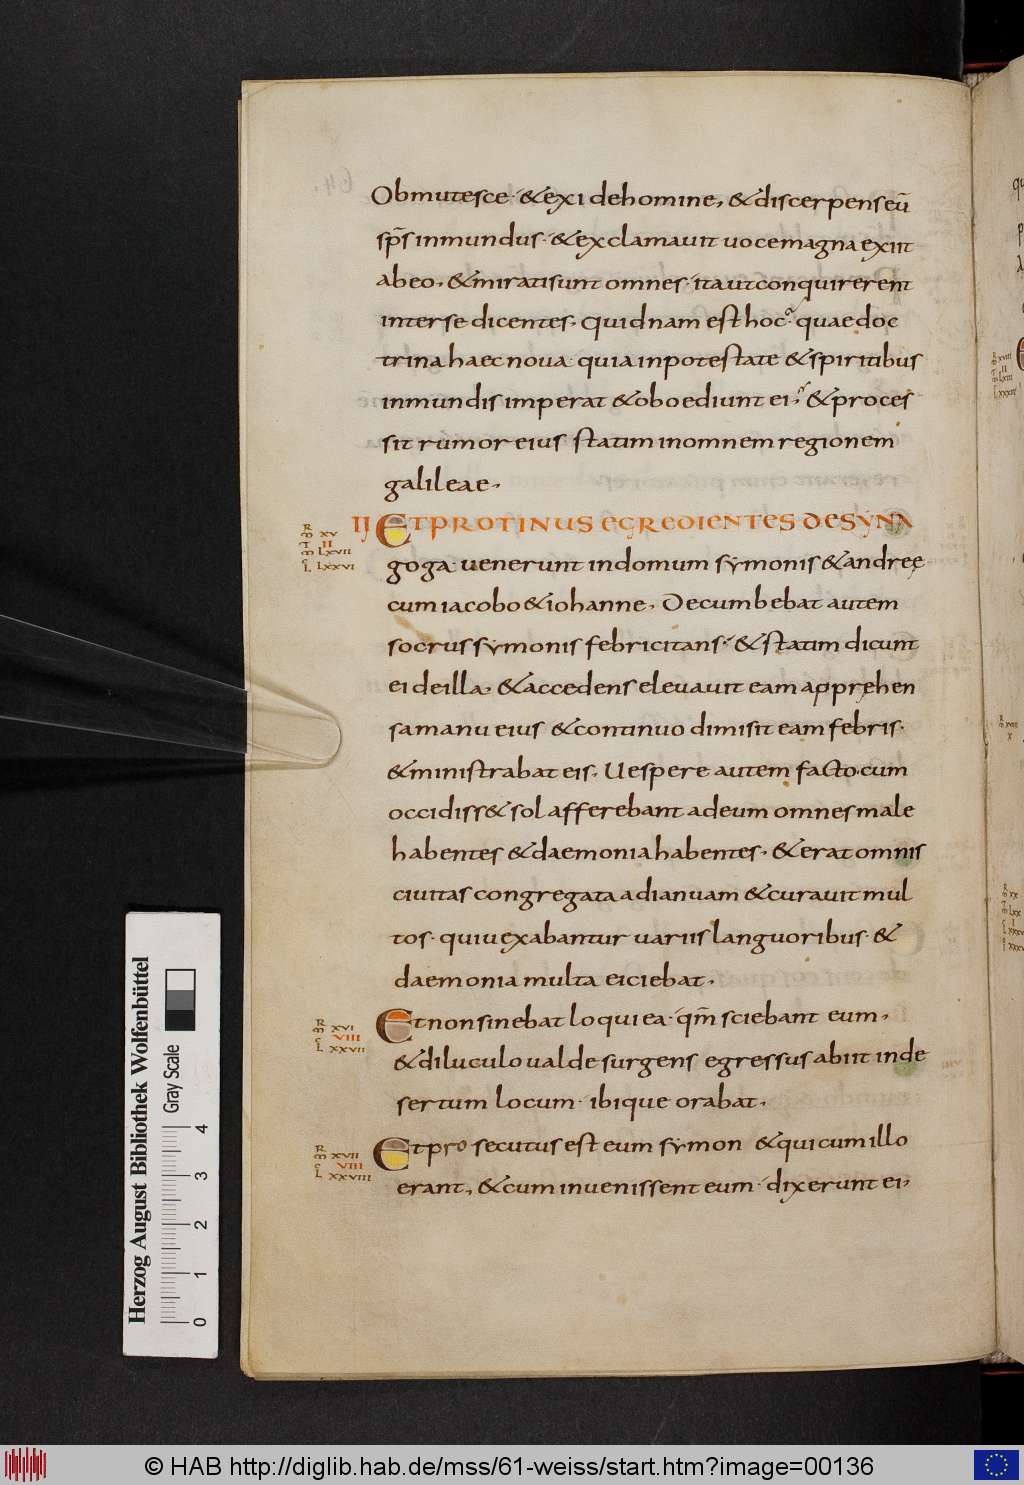 Obmutesce· &exi dehomine, &discerpenseū
sp̄s inmundus· &exclamauit uocemagna exiit
abeo, &miratisunt omnes· itautconquirerent
interse dicentes, quidnam est hoc· quaedoc
trina haec noua· quia inpotestate &spiritibus
inmundis imperat &oboediunt ei, &proces
sit rumor eius statim inomnem regionem
galileae,
R̄ M̄ XV
T̄ M̄ II LXVII
C L LXXVI
II ETPROTINUS EGREDIENTES DESYNA
goga· uenerunt indomum symonis &andreę
cum iacobo &iohanne, Decumbebat autem
socrus symonis febricitans· &statim dicunt
ei deilla, &accedens eleuauit eam apprehen
samanu eius &continuo dimisit eam febris·
&ministrabat eis, Uespere autem factocum
occidiss& sol afferebant adeum omnes male
habentes &daemoniahabentes, &erat omnis
ciuitas congregata adianuam &curauit mul
tos· quiuexabantur uariis languoribus· &
daemonia multa eiciebat,
R̄ M̄ XVI
VIII
C L XXVII
Etnonsinebat loqui ea· qm̄ sciebant eum,
&diluculo ualde surgens egressus abiit inde
sertum locum· ibique orabat,
R̄ M̄ XVII
VIII
C L XXVIII
Etpro secutus est eum symon &qui cumillo
erant, &cum inuenissent eum· dixerunt ei,
Herzog August Bibliothek Wolfenbüttel
Gray Scale
0 1 2 3 4
© HAB http://diglib.hab.de/mss/61-weiss/start.htm?image=00136